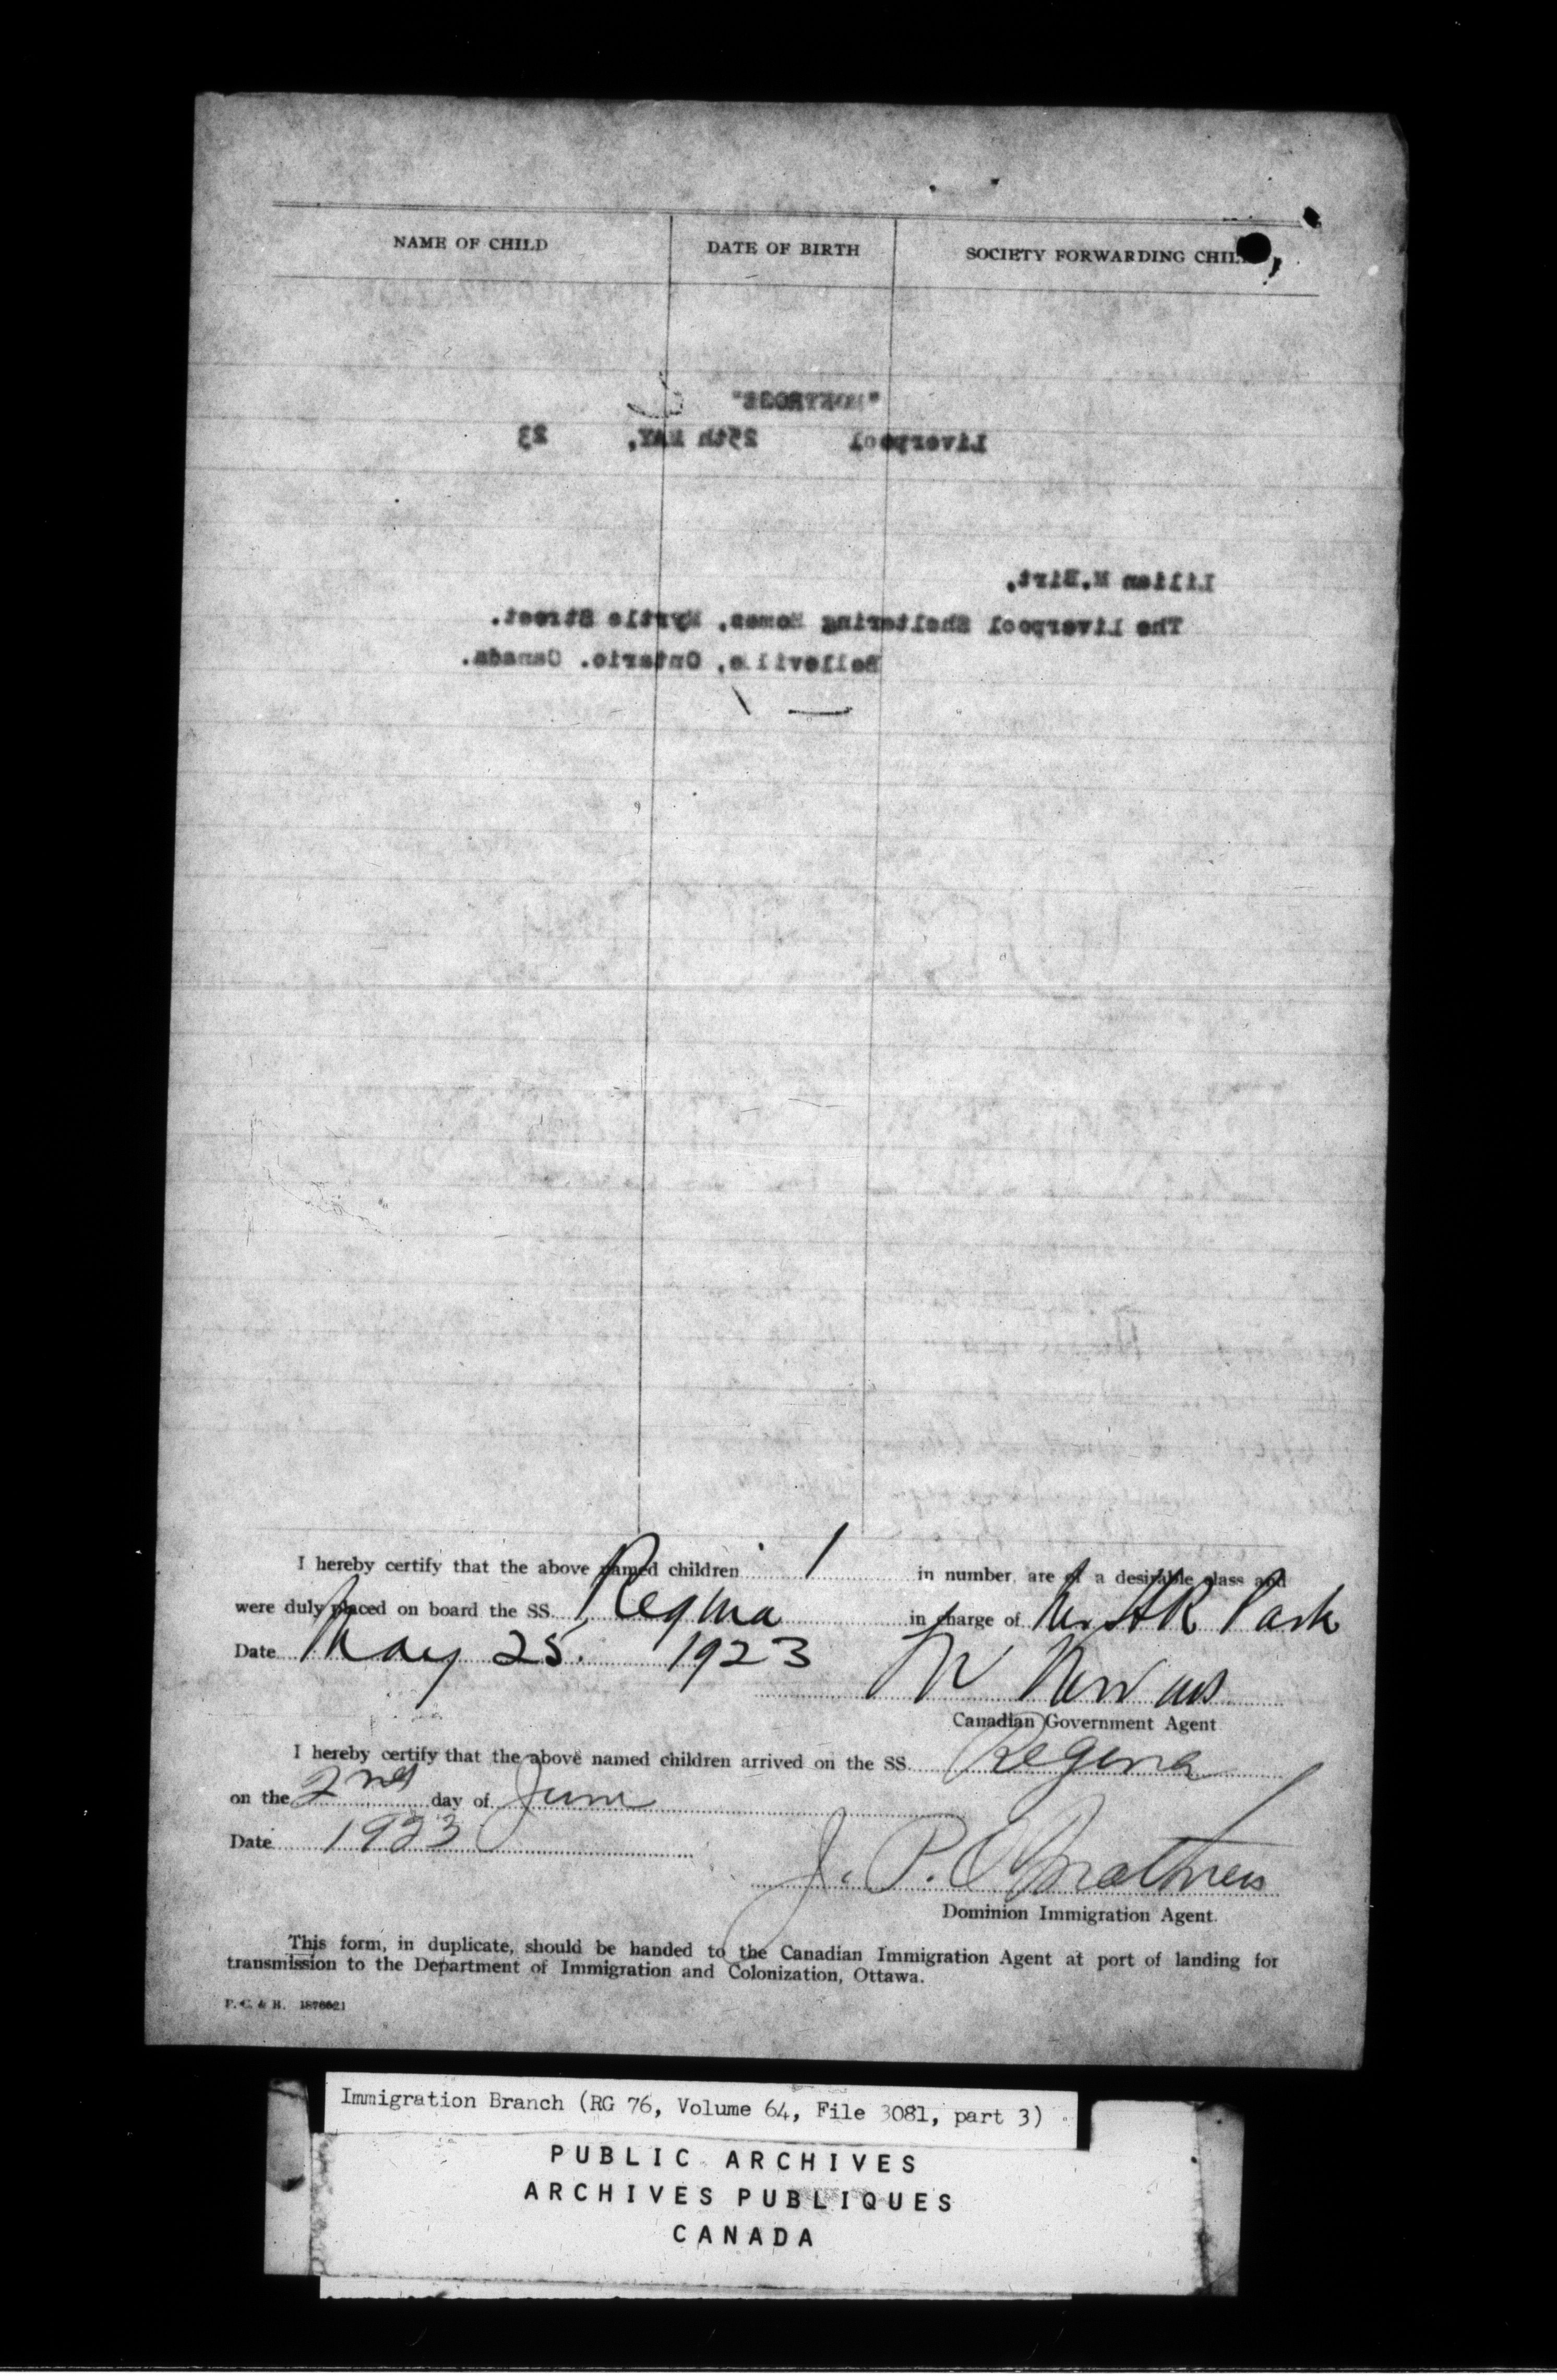 NAME OF CHILD DATE OF BIRTH SOCIETY FORWARDING CHIL
"MONTROSE"
Liverpool 25th MAY, 23
Lilian M.Birt,
The Liverpool Sheltering Homes, Myrtle Street.
Belleville, Ontario. Canada.
I hereby certify that the above named children 1 in number are of a desirable class and
were duly placed on board the SS. Regina in charge of Mr. H R Park
Date May 25. 1923
Canadian Government Agent
I hereby certify that the above named children arrived on the SS. Regina
on the 2nd day of June
Date 1923
J. P.
Dominion Immigration Agent.
This form, in duplicate, should be handed to the Canadian Immigration Agent at port of landing for
transmission to the Department of Immigration and Colonization, Ottawa.
Immigration Branch (RG 76, Volume 64, File 3081, part 3)
PUBLIC ARCHIVES
ARCHIVES PUBLIQUES
CANADA